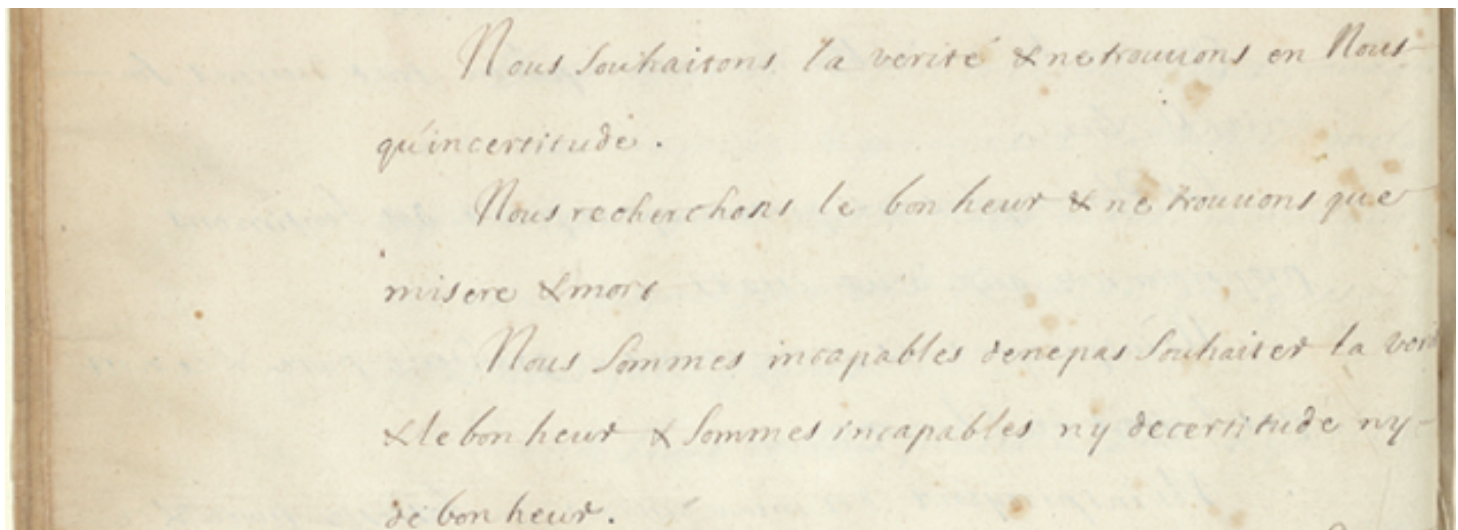 Nous souhaitons la verité & ne trouuons en Nous
qu'incertitude.
Nous recherchons le bonheur & ne trouuons que
misere & mort
Nous sommes incapables de ne pas souhaiter la
& le bonheur & sommes incapables ny de certitude ny
de bonheur.